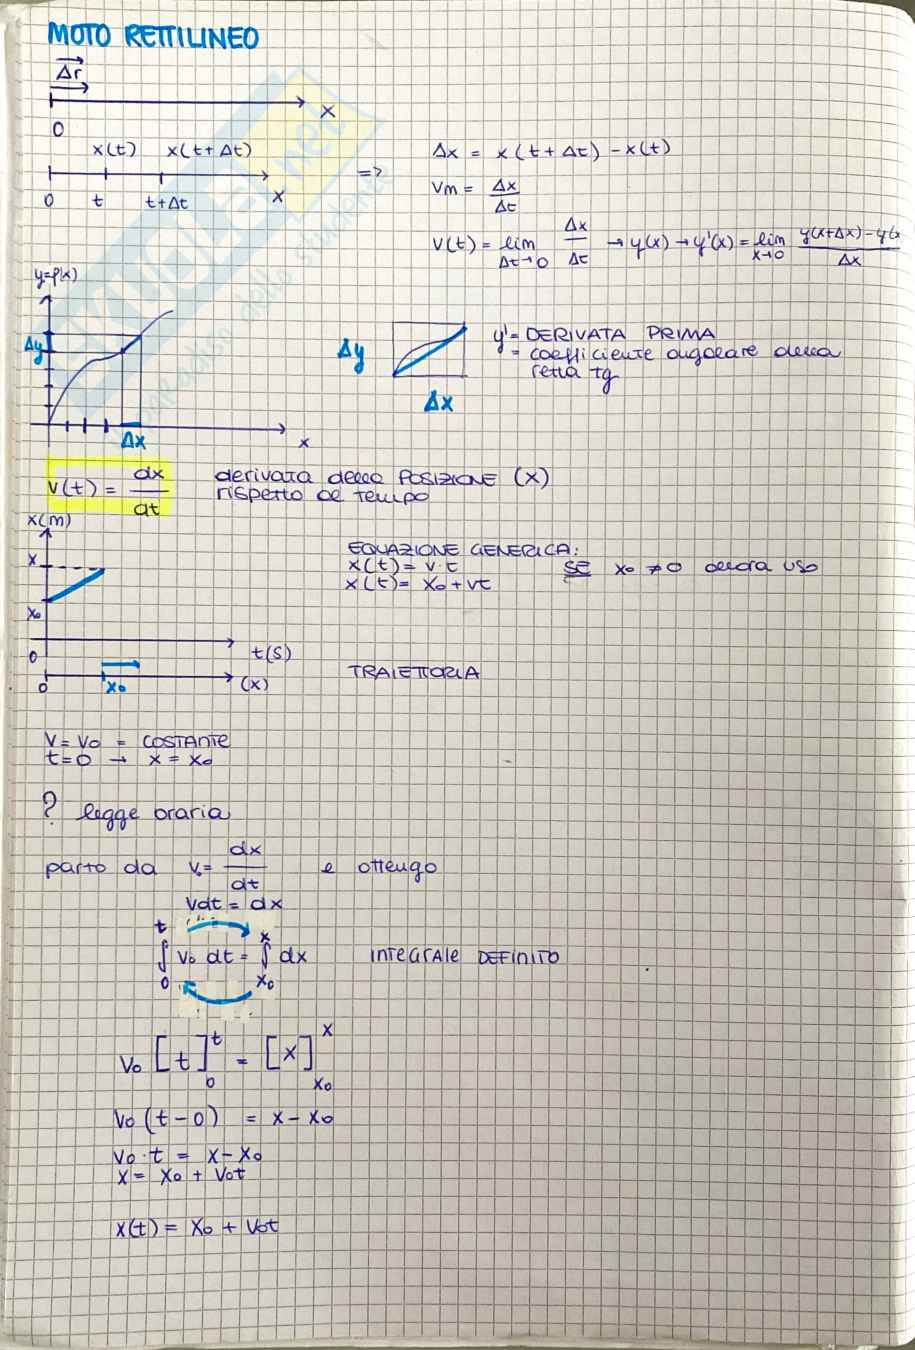 MOTO RETTILINEO
Δr
x
0
x(t) x(t+Δt)
0 t t+Δt x
=>
Δx = x(t+Δt) - x(t)
Vm = Δx/Δt
V(t) = lim Δt→0 Δx/Δt → y(x) → y'(x) = lim x→0 y(x+Δx)-y(x / Δx
y=f(x)
Δy
Δx
x
Δy
Δx
y'= DERIVATA PRIMA
= coefficiente angolare della
retta tg
V(t) = dx/dt derivata della POSIZIONE (x)
rispetto al tempo
x(m)
x
x₀
0
t(s)
EQUAZIONE GENERICA:
x(t) = v·t SE x₀ ≠0 allora uso
x(t) = x₀+vt
0 x₀ (x)
TRAIETTORIA
V = V₀ = COSTANTE
t=0 → x = x₀
? legge oraria
parto da v₀= dx/dt e ottengo
Vdt = dx
∫₀ᵗ V₀ dt = ∫ₓ₀ˣ dx INTEGRALE DEFINITO
V₀ [t]₀ᵗ = [x]ₓ₀ˣ
V₀ (t-0) = x-x₀
V₀·t = x-x₀
x = x₀ + V₀t
x(t) = x₀ + V₀t
SKUOLA.net
paradiso dello studente